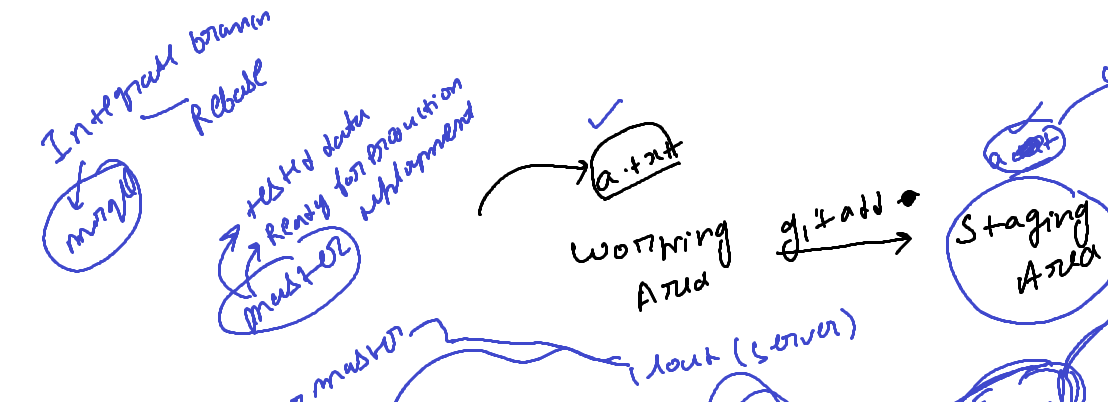 Integrate branch
Rebase
merge
tested data
Ready for production
deployment
master
a.txt
Working
Area
git add .
Staging
Area
master
(server)